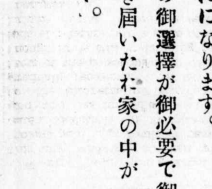 になります。
の御選擇が御必要で御
き屆いたお家の中が
。